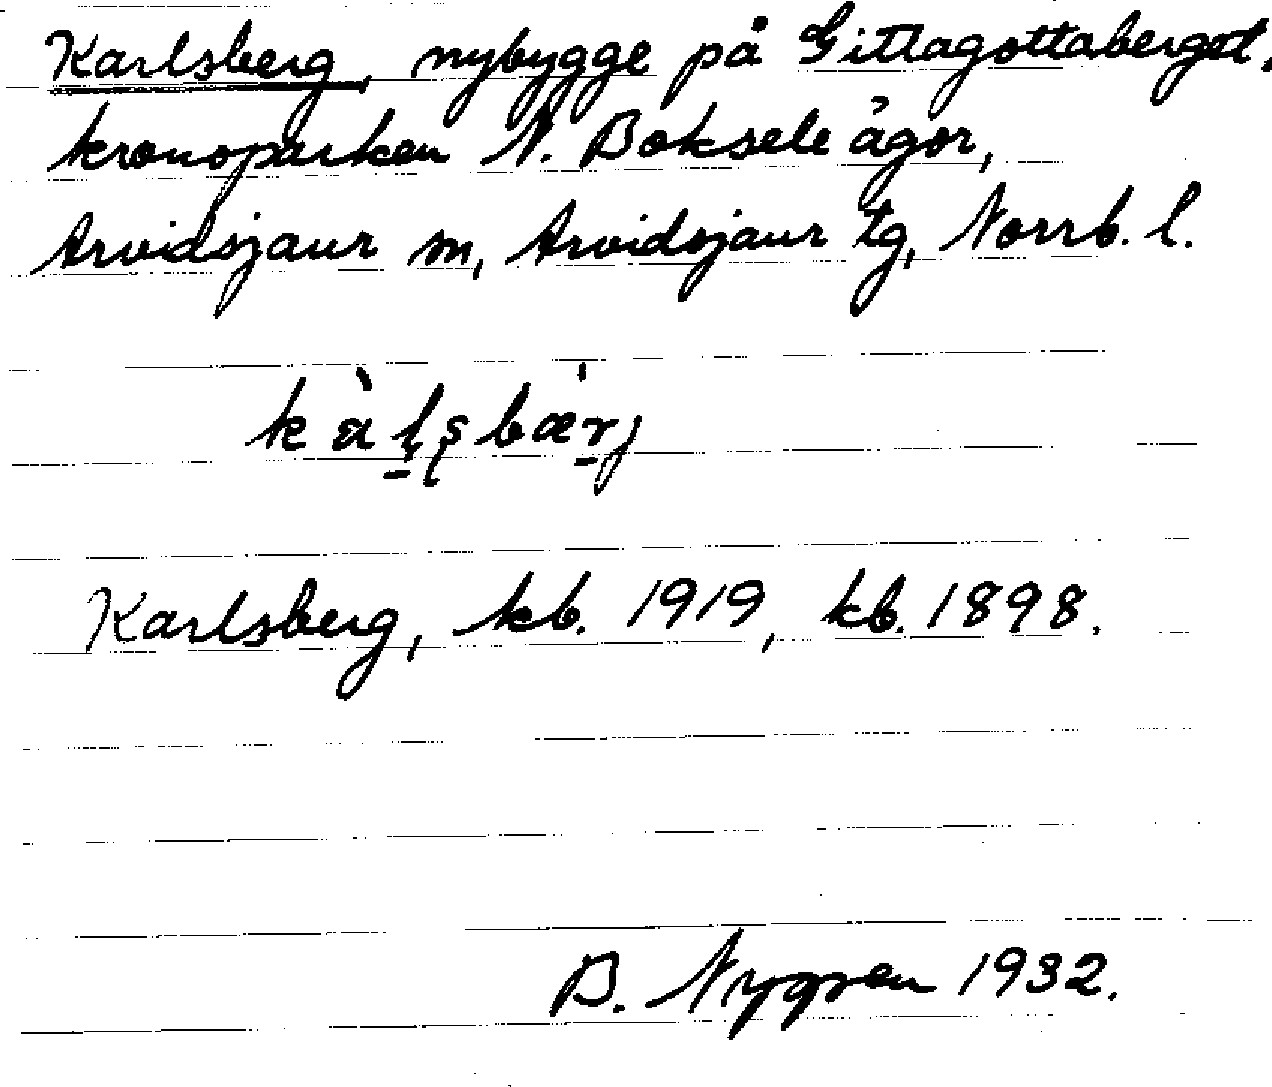 Karlsberg, nybygge på Gitlagottaberget,
kronoparken N. Boksele ägor,
Arvidsjaur sn, Arvidsjaur tg, Norrb. l.
kàl̠ʂbæ̀r̠j
Karlsberg, kb. 1919, kb. 1898.
B. Nygren 1932.